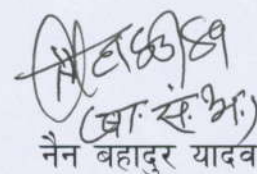 (प्रा. सं. अ.)
नैन बहादुर यादव